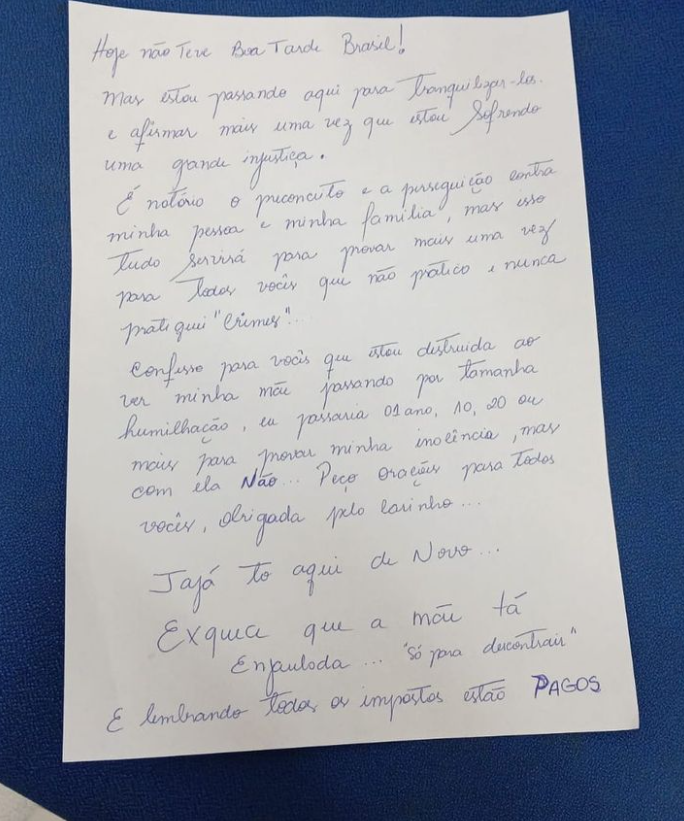 Hoje não Teve Boa Tarde Brasil!
Mas estou passando aqui para Tranquilizar-los.
e afirmar mais uma vez que estou Sofrendo
uma grande injustiça.
É notório o preconceito e a perseguição contra
minha pessoa e minha família, mas isso
tudo servirá para provar mais uma vez
para Todos vocês que não pratico e nunca
pratiquei "Crimes"...
Confesso para vocês que estou distruida ao
ver minha mãe passando por tamanha
humilhação, eu passaria 01 ano, 10, 20 ou
mais para provar minha inocência, mas
com ela Não... Peço orações para todos
vocês, obrigada pelo carinho...
Jajá to aqui de Novo...
Esquea que a mãe tá
Enjaulada... "só para descontrair"
E lembrando todos os impostos estão PAGOS